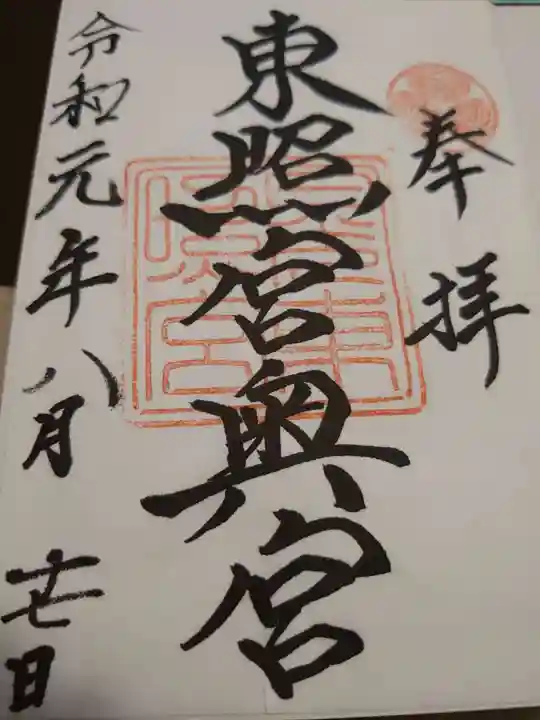 奉拝
東照宮奥宮
令和元年八月廿七日